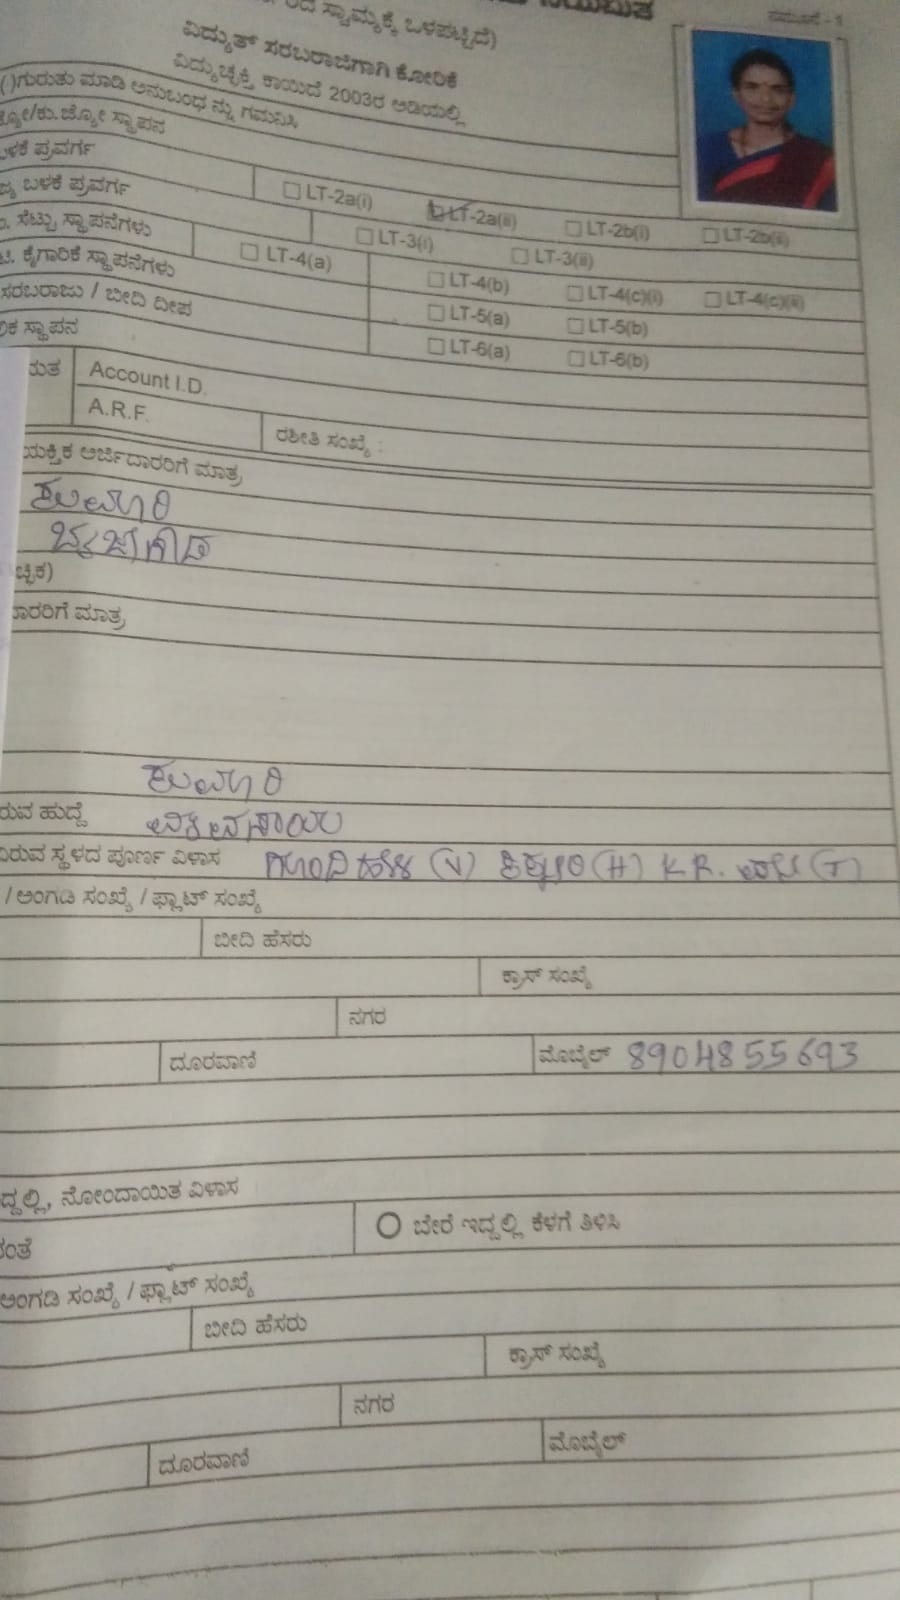 ನಮೂನೆ - 1
ಸ್ವಾಮ್ಯಕ್ಕೆ ಒಳಪಟ್ಟಿದೆ)
ವಿದ್ಯುತ್ ಸರಬರಾಜಿಗಾಗಿ ಕೋರಿಕೆ
ವಿದ್ಯುಚ್ಛಕ್ತಿ ಕಾಯಿದೆ 2003ರ ಅಡಿಯಲ್ಲಿ
( )ಗುರುತು ಮಾಡಿ ಅನುಬಂಧ ನ್ನು ಗಮನಿಸಿ
ಜ್ಯೋ/ಕು.ಜ್ಯೋ ಸ್ಥಾಪನ
ಬಳಕೆ ಪ್ರವರ್ಗ
ಬಳಕೆ ಪ್ರವರ್ಗ LT-2a(i) LT-2a(ii) LT-2b(i) LT-2b(ii)
ಸೆಟ್ಟು ಸ್ಥಾಪನೆಗಳು LT-3(i) LT-3(ii)
ಕೈಗಾರಿಕೆ ಸ್ಥಾಪನೆಗಳು LT-4(a) LT-4(b) LT-4(c)(i) LT-4(c)(ii)
ಸರಬರಾಜು / ಬೀದಿ ದೀಪ LT-5(a) LT-5(b)
ಸ್ಥಾಪನ LT-6(a) LT-6(b)
Account I.D.
A.R.F. ರಶೀತಿ ಸಂಖ್ಯೆ :
ಯಕ್ತಿಕ ಅರ್ಜಿದಾರರಿಗೆ ಮಾತ್ರ
ಕುಮಾರಿ
ಚ್ಛಿಕ)
ದಾರರಿಗೆ ಮಾತ್ರ
ಕುಮಾರಿ
ರುವ ಹುದ್ದೆ
ವಿರುವ ಸ್ಥಳದ ಪೂರ್ಣ ವಿಳಾಸ (V) (H) K.R. (T)
/ ಅಂಗಡಿ ಸಂಖ್ಯೆ / ಫ್ಲಾಟ್ ಸಂಖ್ಯೆ
ಬೀದಿ ಹೆಸರು
ಕ್ರಾಸ್ ಸಂಖ್ಯೆ
ನಗರ
ದೂರವಾಣಿ ಮೊಬೈಲ್ 8904855693
ದ್ದಲ್ಲಿ, ನೋಂದಾಯಿತ ವಿಳಾಸ
ನಂತೆ ಬೇರೆ ಇದ್ದಲ್ಲಿ ಕೆಳಗೆ ತಿಳಿಸಿ
ಅಂಗಡಿ ಸಂಖ್ಯೆ / ಫ್ಲಾಟ್ ಸಂಖ್ಯೆ
ಬೀದಿ ಹೆಸರು
ಕ್ರಾಸ್ ಸಂಖ್ಯೆ
ನಗರ
ದೂರವಾಣಿ ಮೊಬೈಲ್